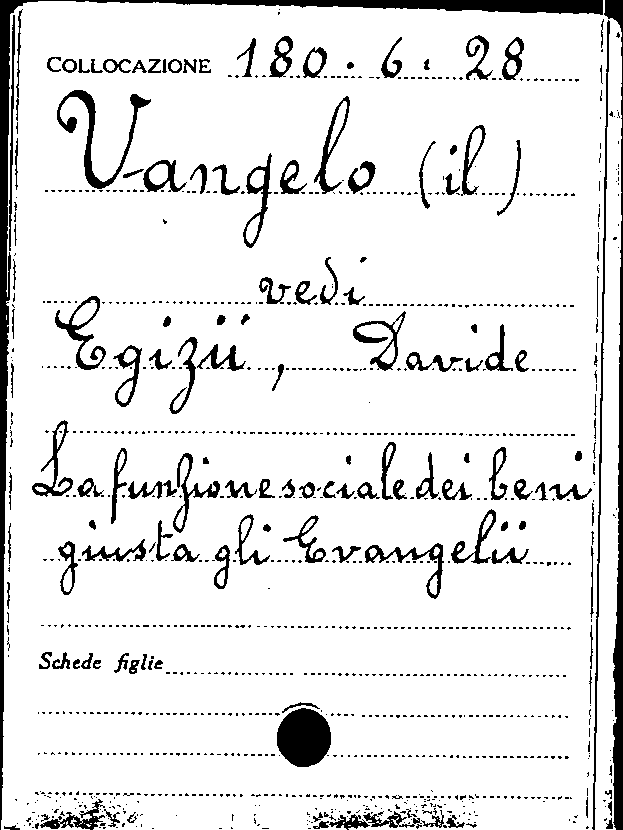 COLLOCAZIONE 180 . 6 . 28
Vangelo (il)
vedi
Egizii, Davide
La funzione sociale dei beni
giusta gli Evangelii
Schede figlie